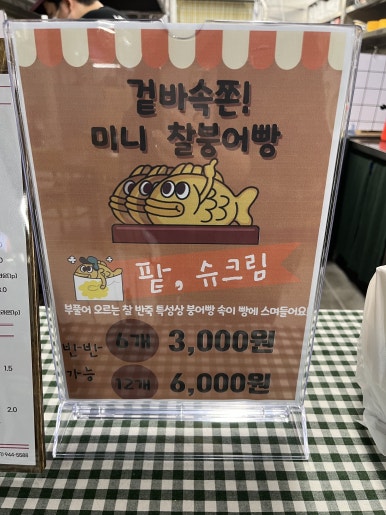 겉바속쫀!
미니 찰붕어빵
팥, 슈크림
부풀어 오르는 찰 반죽 특성상 붕어빵 속이 빵에 스며들어요
반-반- 6개 3,000원
가능 12개 6,000원
1.5
2.0
944-5588